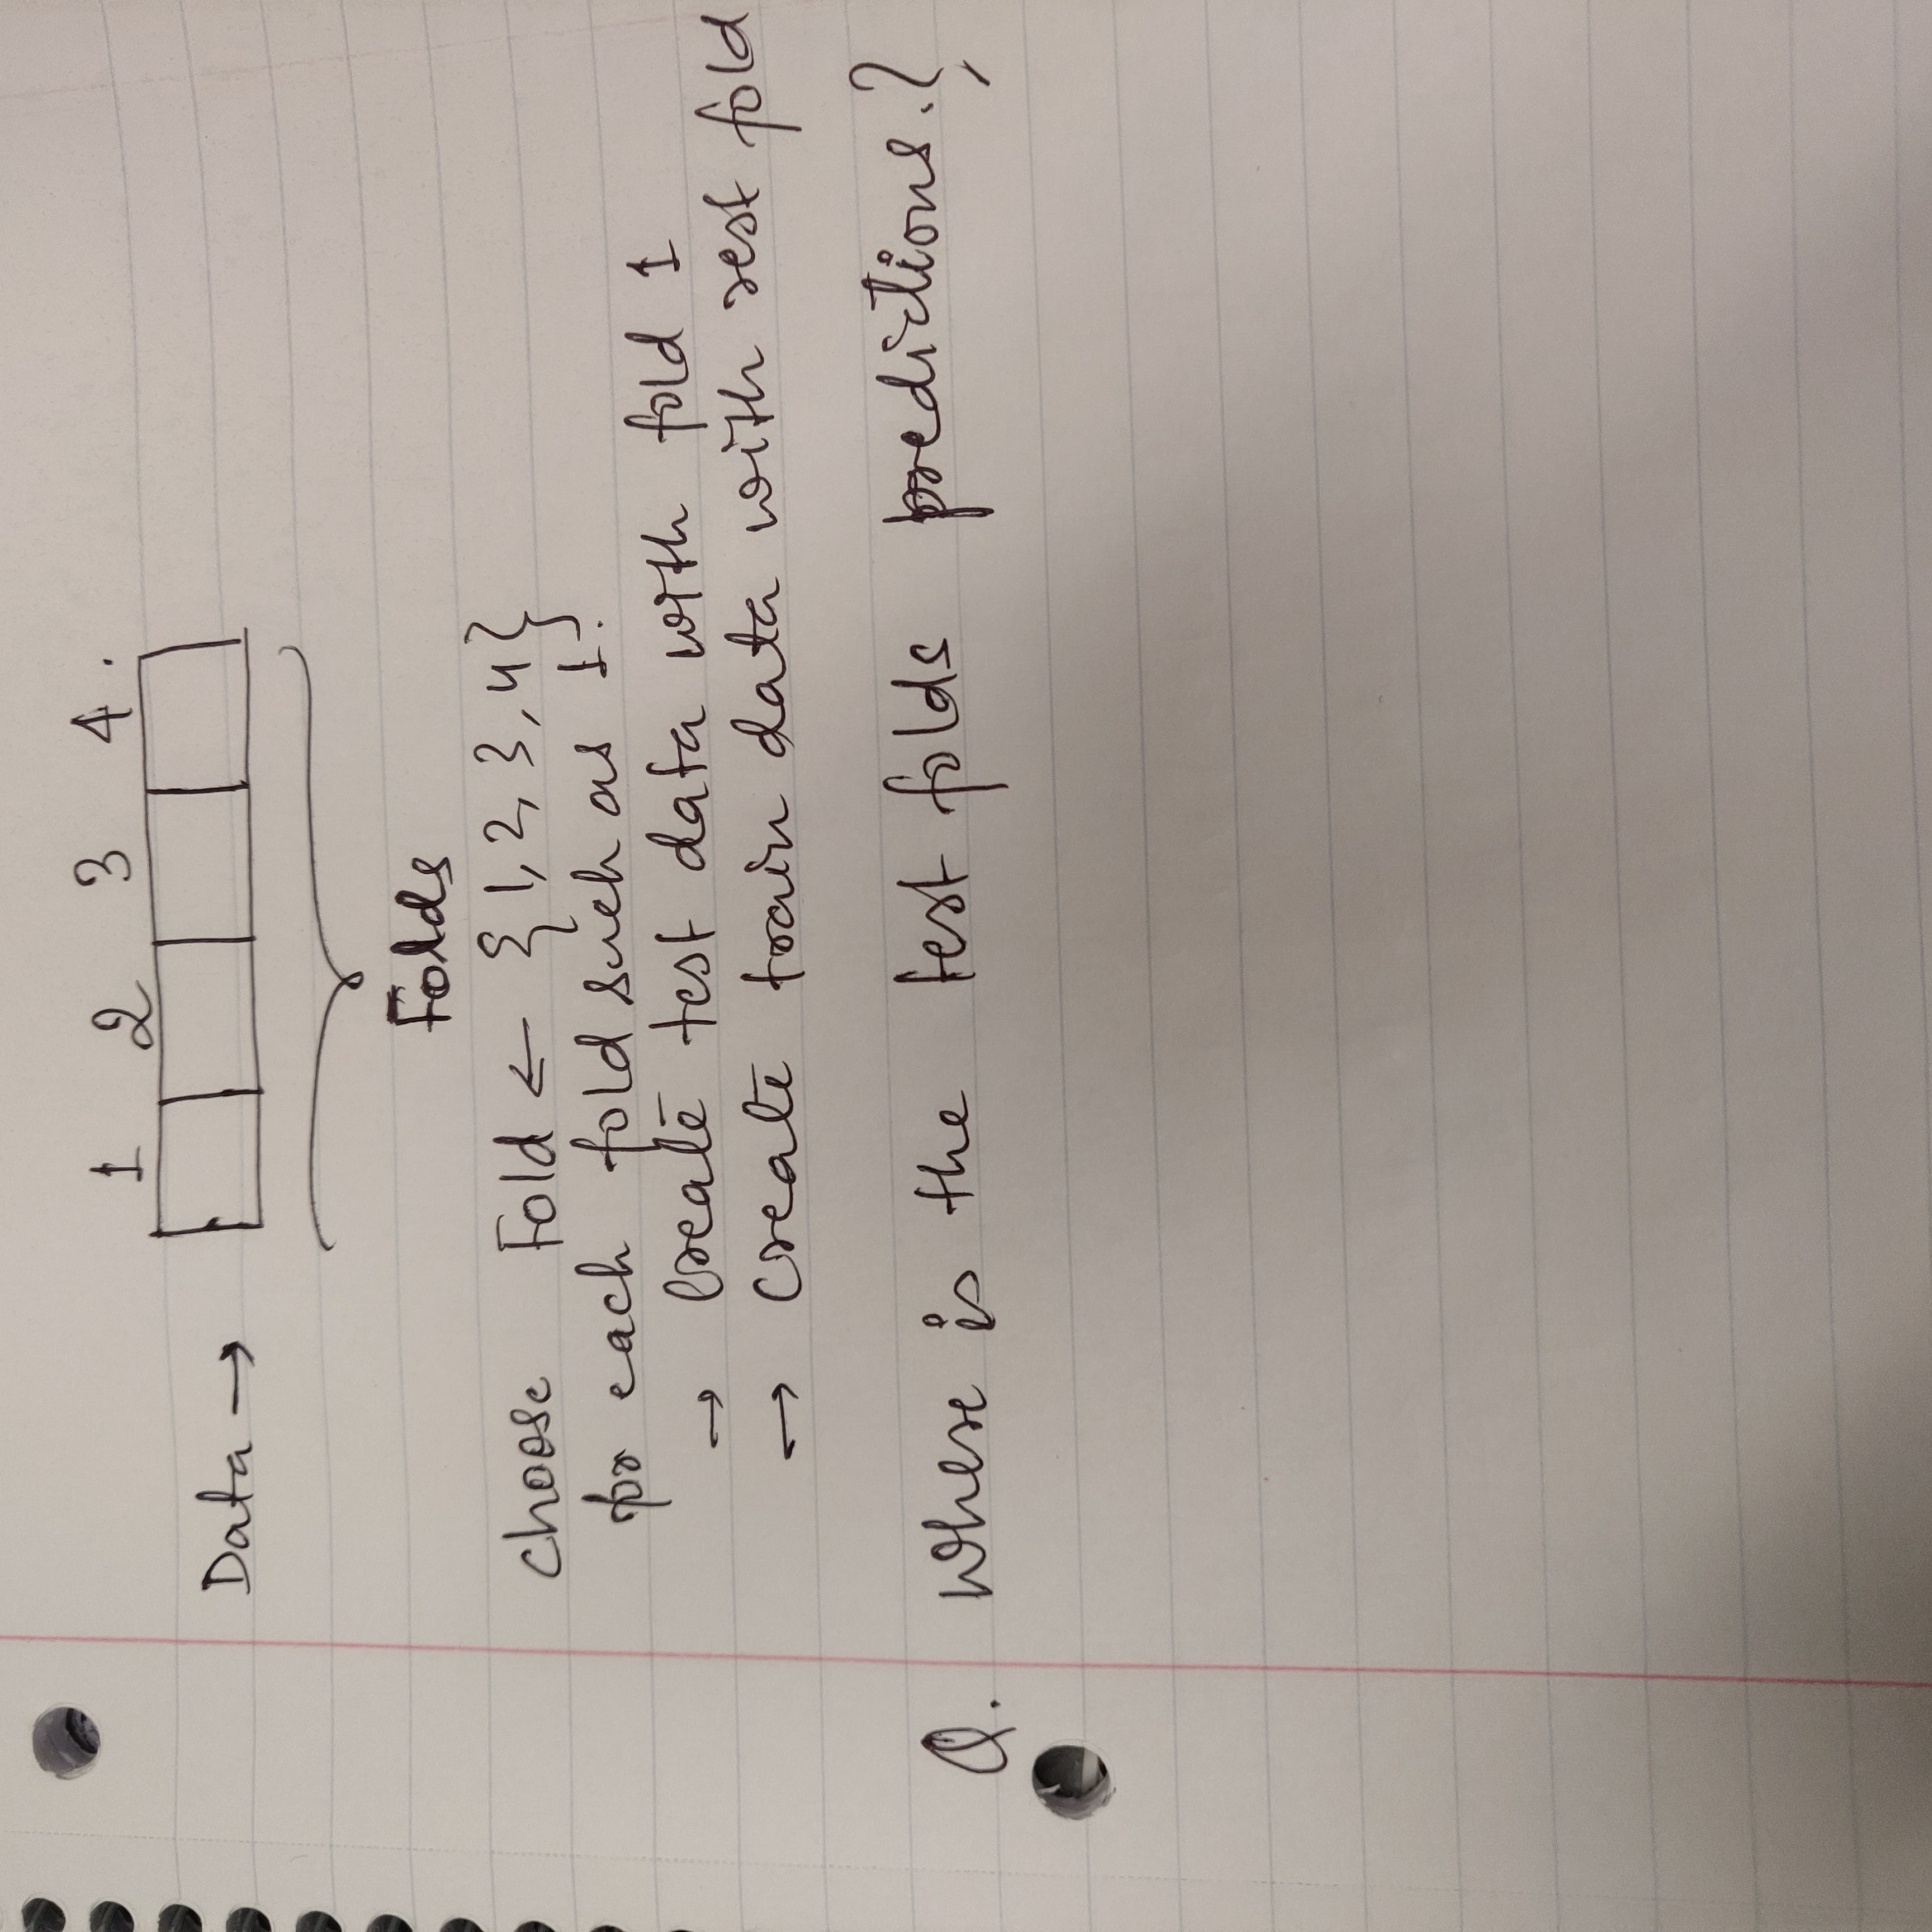 1 2 3 4.
Data →
Folds
choose Fold ← {1, 2, 3, 4}
for each fold such as 1.
→ create test data with fold 1
→ create train data with rest fold
Q. Where is the test folds predictions.?